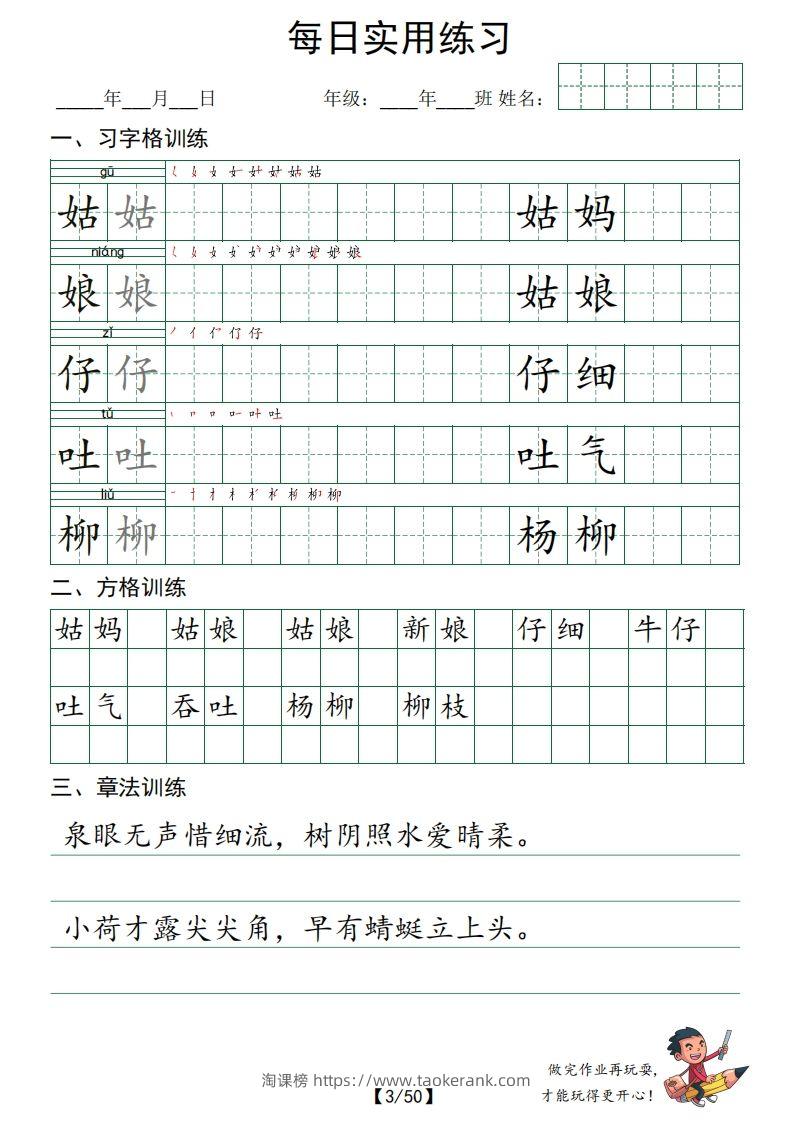 每日实用练习
_____年___月___日 年级：____年____班 姓名：
一、习字格训练
gū
姑 姑 姑 妈
niáng
娘 娘 姑 娘
zǐ
仔 仔 仔 细
tǔ
吐 吐 吐 气
liǔ
柳 柳 杨 柳
二、方格训练
姑妈 姑娘 姑娘 新娘 仔细 牛仔
吐气 吞吐 杨柳 柳枝
三、章法训练
泉眼无声惜细流，树阴照水爱晴柔。
小荷才露尖尖角，早有蜻蜓立上头。
做完作业再玩耍，
才能玩得更开心！
淘课榜 https://www.taokerank.com
【3/50】